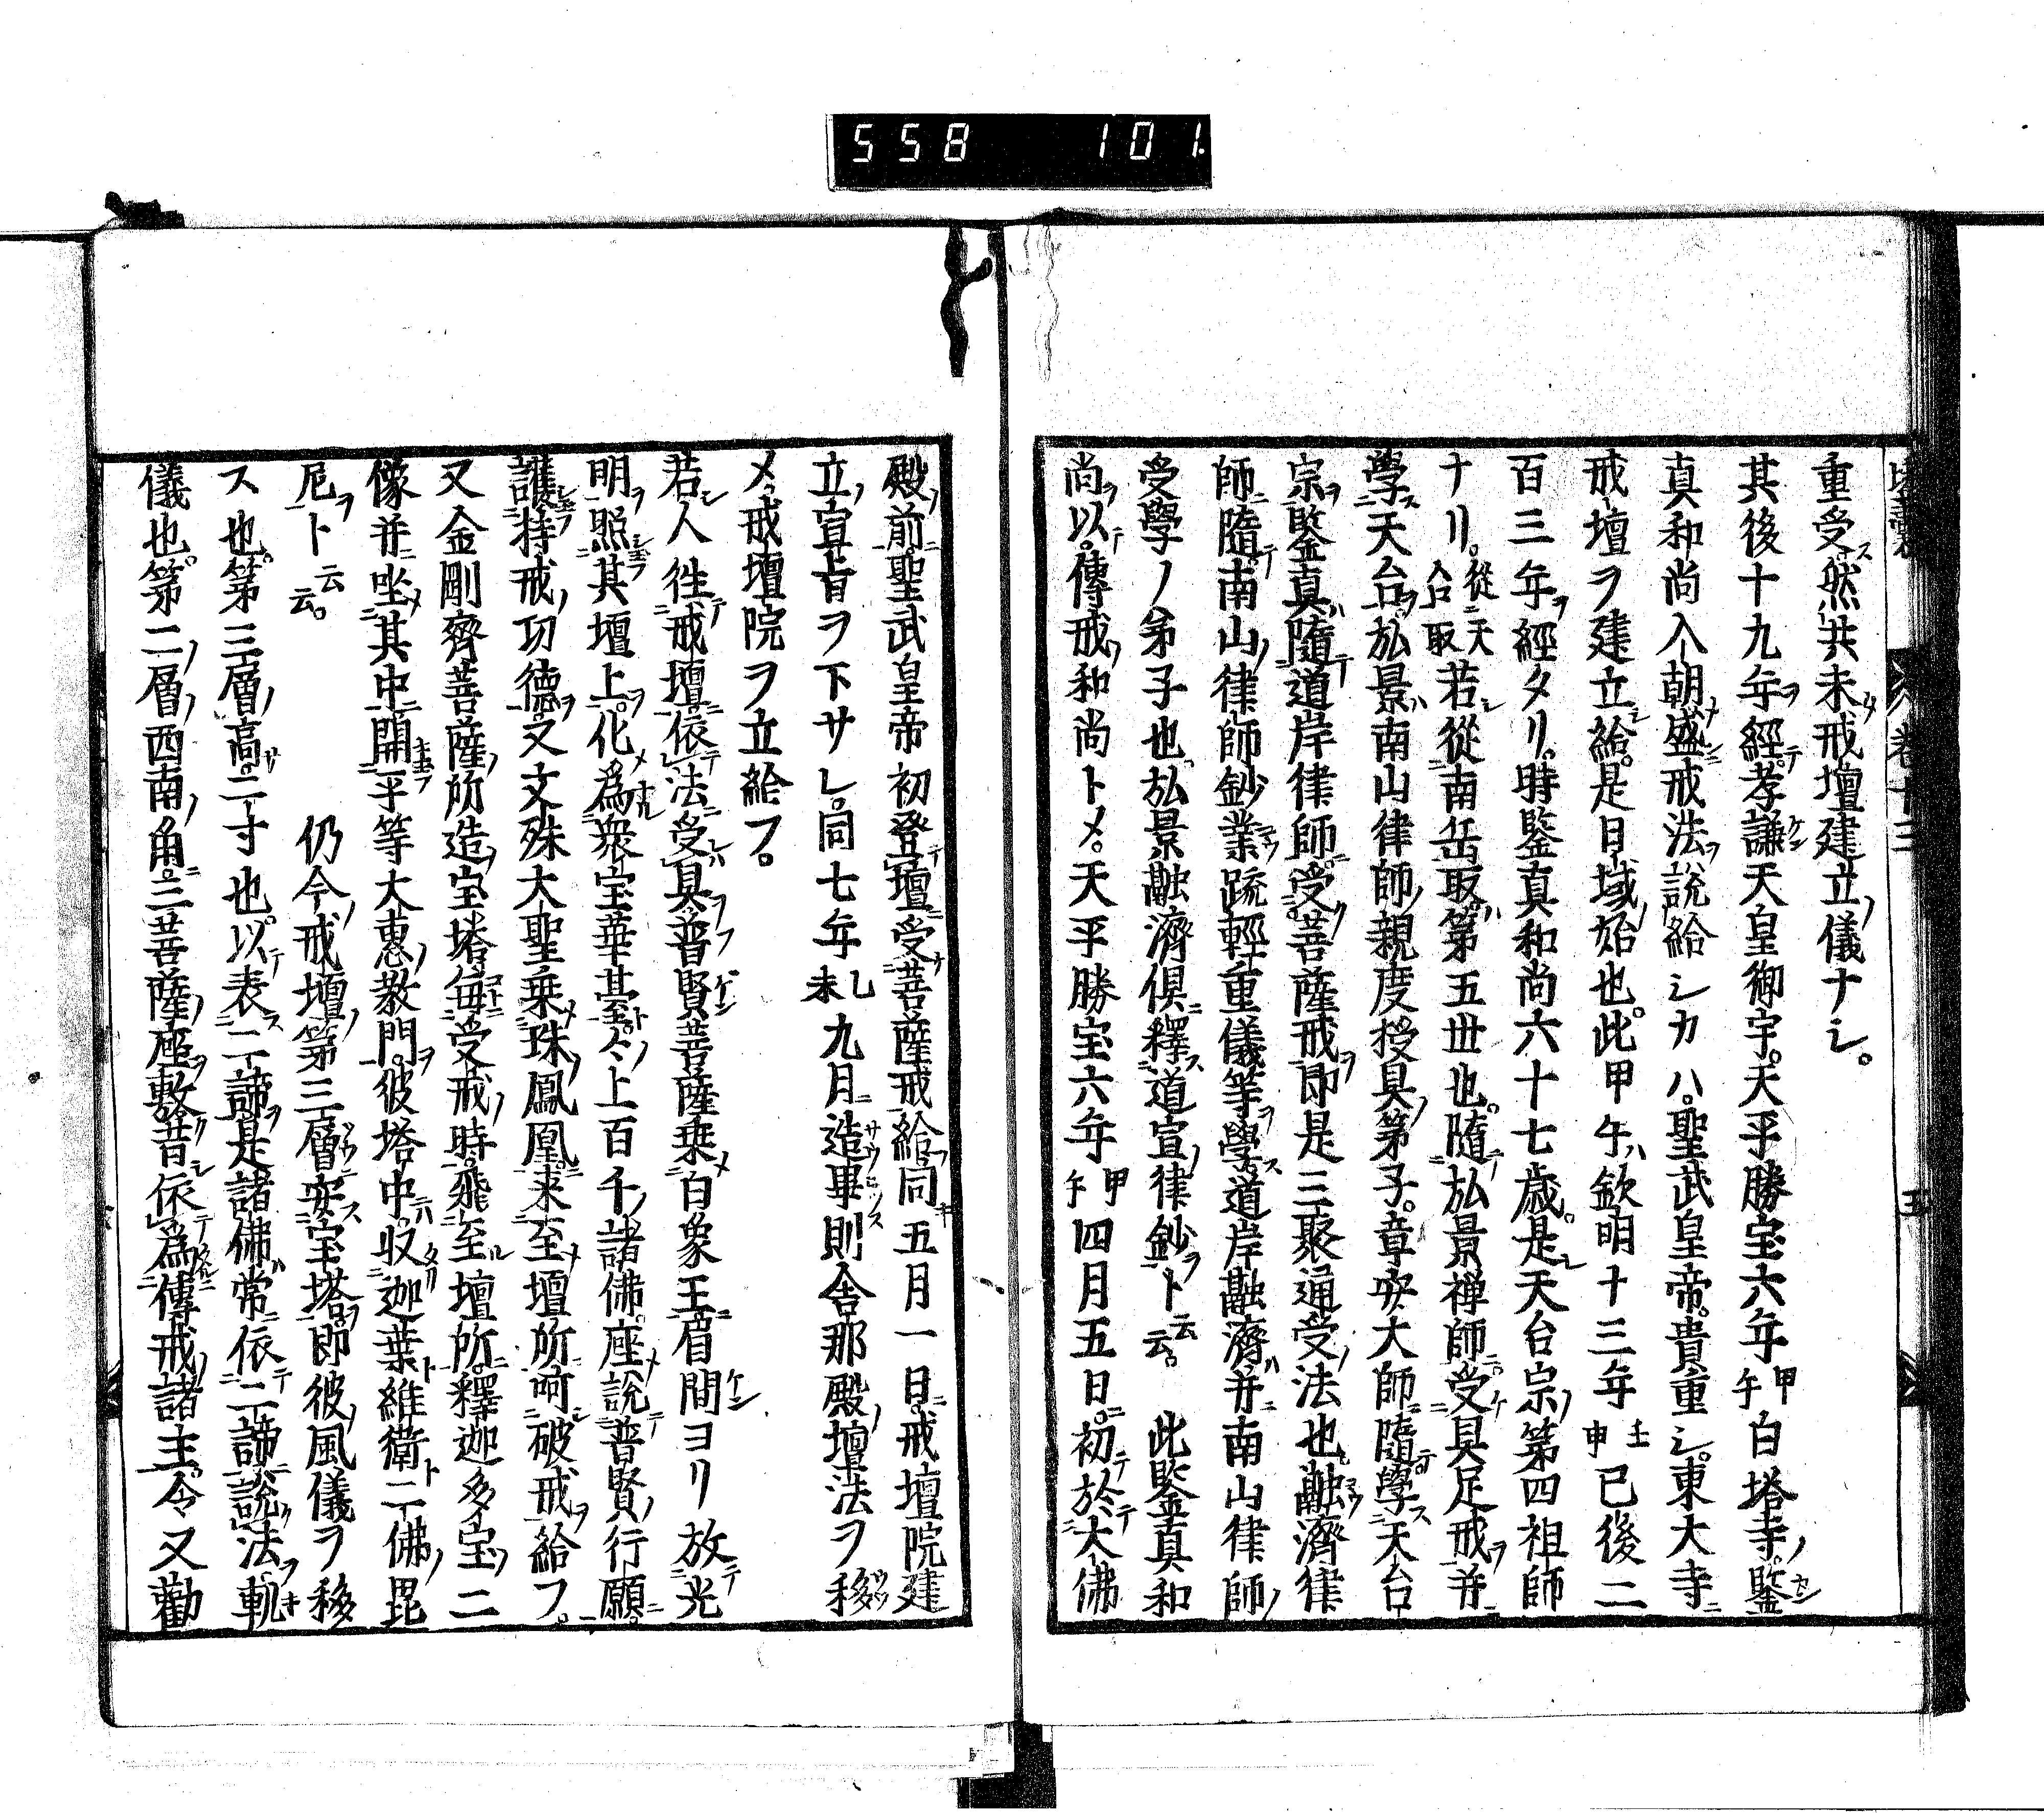 558 101
卷十三
五
重受ス然共未タ戒壇建立ノ儀ナシ。
其後十九年ヲ經テ。孝謙天皇御宇。天平勝宝六年甲午白塔寺ノ鑒
真和尚入朝メ盛ニ戒法ヲ說給シカハ。聖武皇帝。貴重シ。東大寺ニ
戒壇ヲ建立シ給。是日域ノ始也。此甲午ハ欽明十三年壬申已後二
百三年ヲ經タリ。時鑒真和尚六十七歲。是レ天台宗ノ第四祖師
ナリ。從天台取若シ從南岳取ハ第五世也。隨テ弘景禅師ニ受ケ具足戒ヲ并ニ
學ス天台ヲ弘景ハ南山律師ノ親度授具ノ第子。章安大師ニ隨テ學ス天台
宗ヲ鑒真ハ隨テ道岸律師ニ受ク菩薩戒ヲ即是三聚通受ノ法也融濟律
師ニ隨テ南山ノ律師鈔業䟽輕重儀等ヲ學ス道岸融濟ハ并ニ南山律師ノ
受學ノ弟子也弘景融濟俱ニ釋ス道宣ノ律鈔ヲト云云。此鑒真和
尚ヲ以テ傳戒ノ和尚トメ。天平勝宝六年甲午四月五日。初テ於テ大佛
殿ノ前ニ聖武皇帝初登テ壇ニ受サ菩薩戒給フ同キ五月一日ニ戒壇院建
立ノ宣旨ヲ下サレ。同七年乙未九月造畢ス則舍那殿ノ壇法ヲ移
メ戒壇院ヲ立給フ。
若シ人徃テ戒壇ニ依テ法ニ受レハ具ヲ普賢菩薩乗メ白象王ニ眉間ヨリ放テ光
明ヲ照其壇上ヲ化メ為衆宝華臺ト々ノ上百千ノ諸佛座メ說テ普賢ノ行願ニ
護持戒ノ功德ヲ又文殊大聖乗メ珠ノ鳳凰ニ来至メ壇所ニ呵シ破戒ヲ給フ。
又金剛齊菩薩ノ所造ノ宝塔每ニ受戒ノ時飛至ル壇所ニ釋迦多宝ノ二
像并ニ坐メ其中ニ開平等大惠ノ教門ヲ彼塔中ニハ収タリ迦葉ト維衛ト二佛ノ毘
尼ヲト云云。仍今ノ戒壇ノ第三層ニ安ス宝塔ヲ即彼ノ風儀ヲ移
ス也。第三層ノ高サ二寸也。以テ表ス二諦ヲ是諸佛ハ常ニ依テ二諦ニ說ク法ヲ軌
儀也。第二ノ層ノ西南ノ角ニ三菩薩ノ座ヲ敷ク昔シ依テ為ルニ傳戒ノ諸主ト今又勸